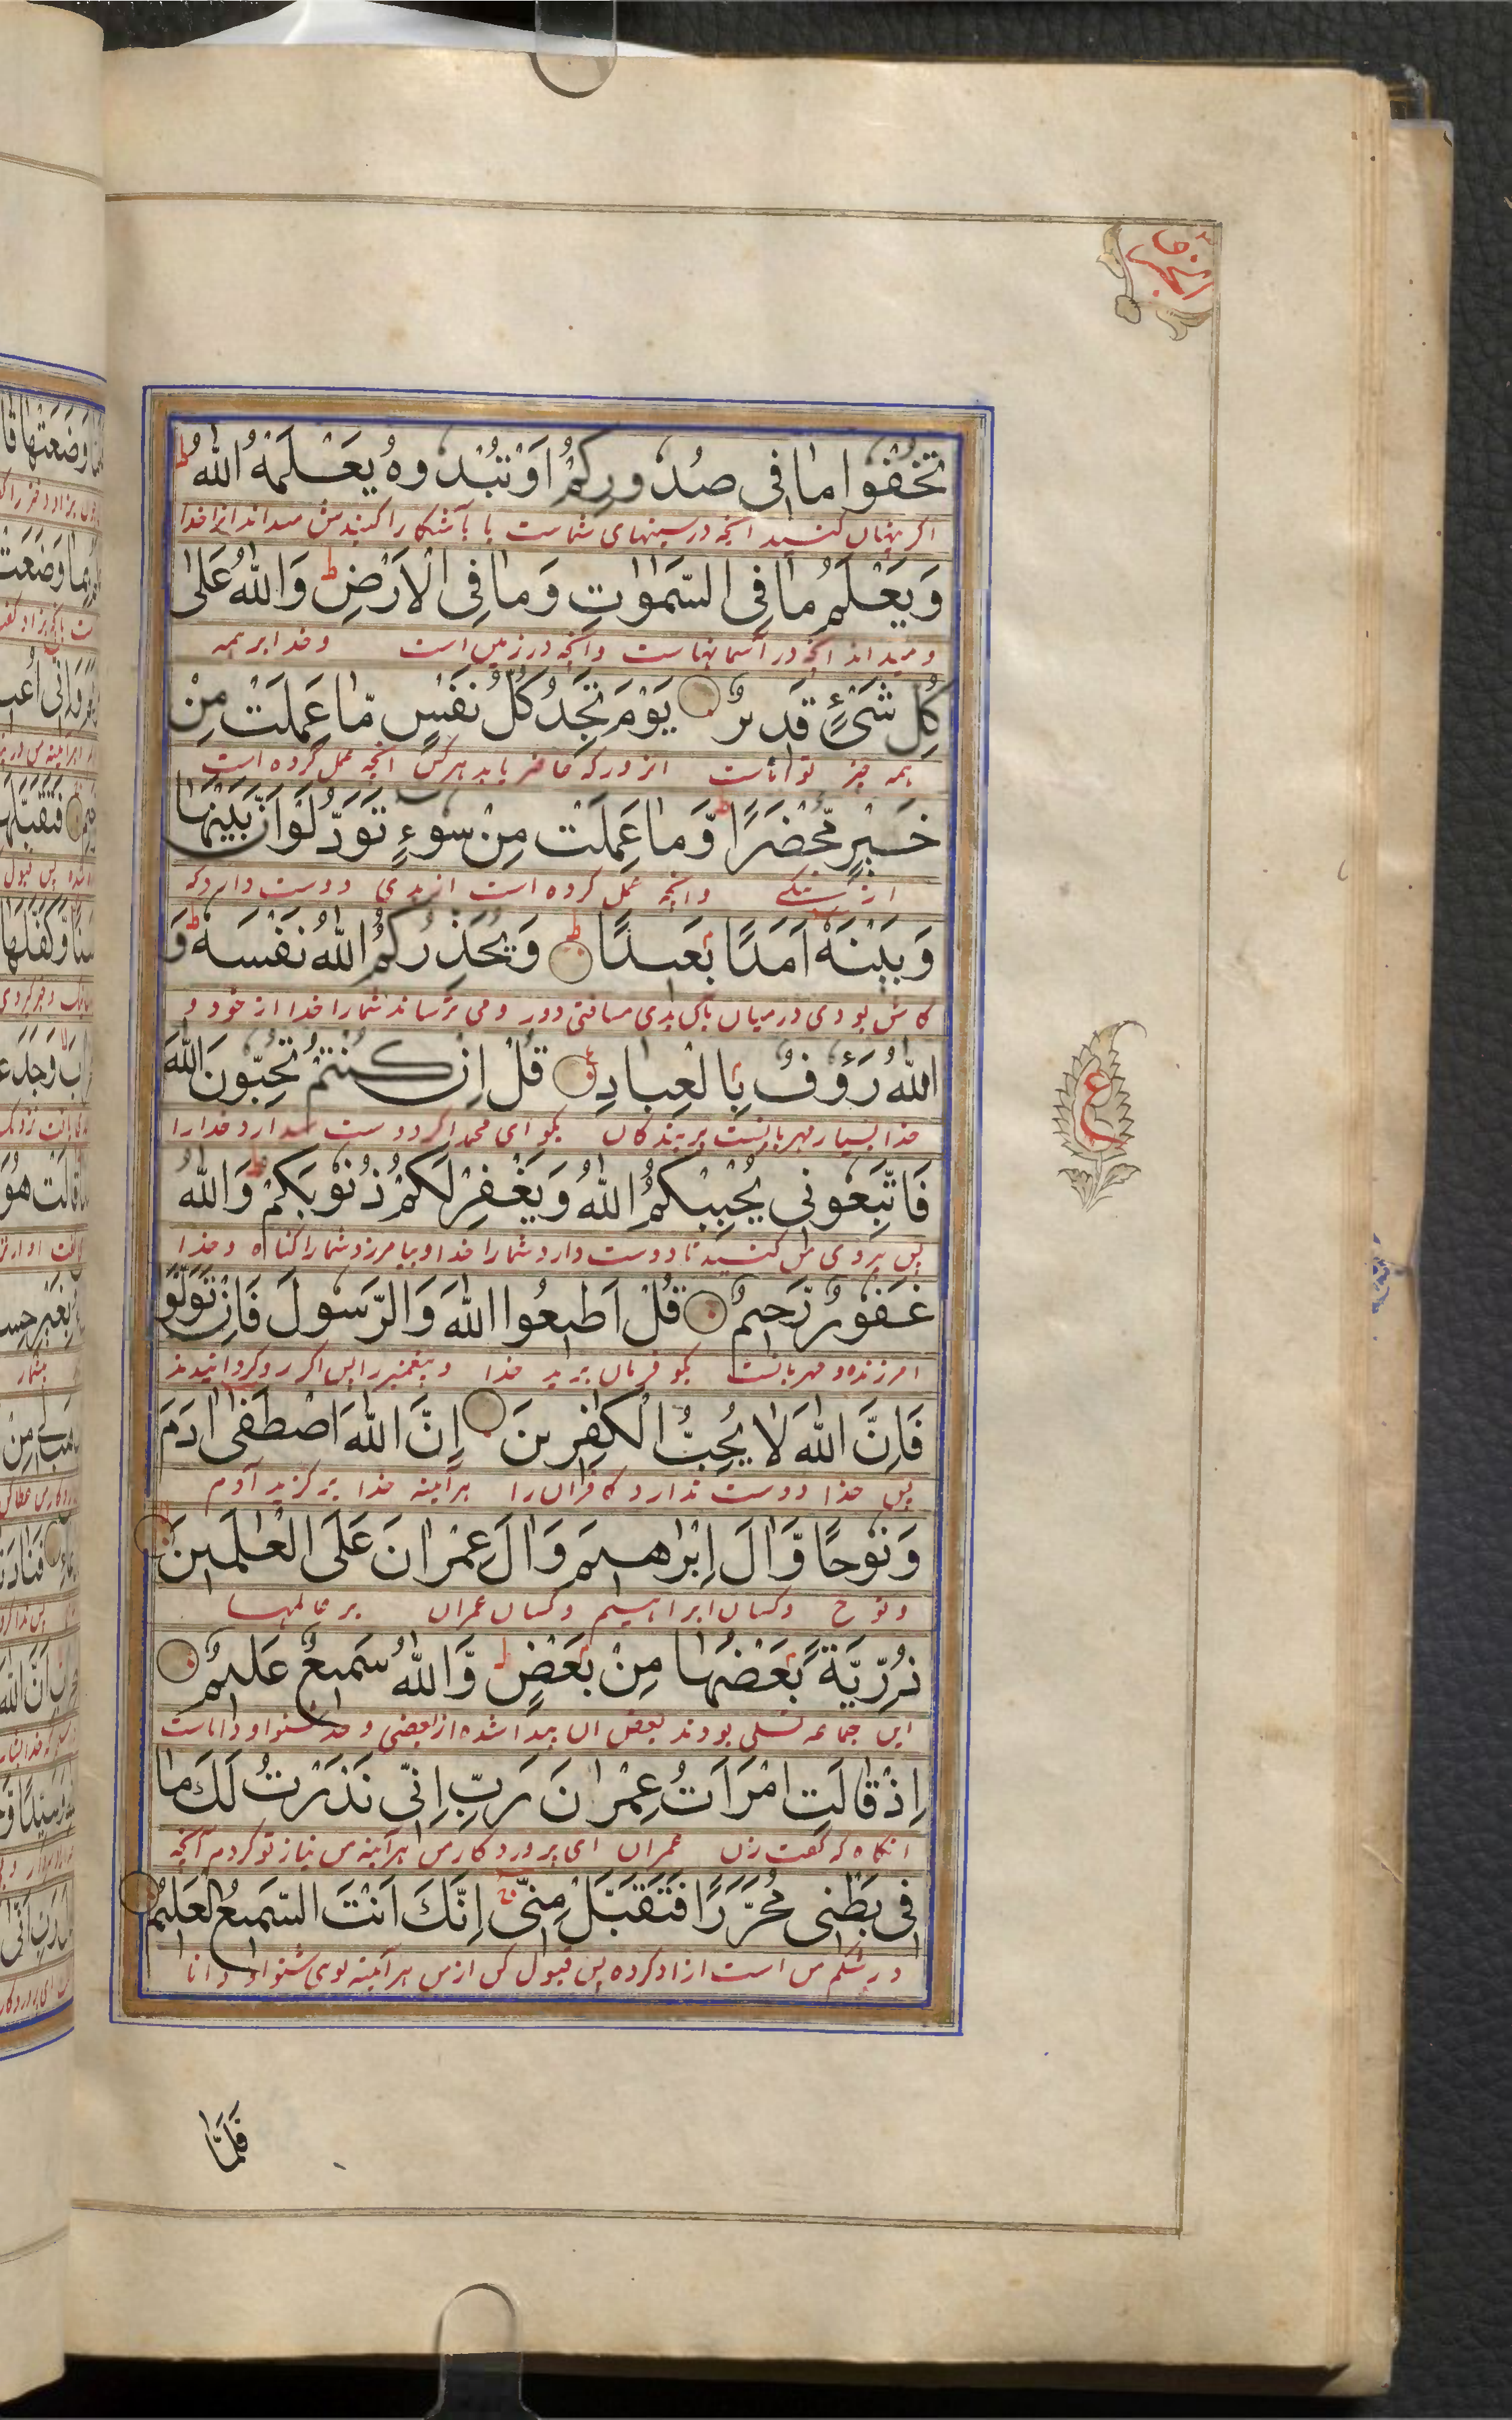 تُخْفُوا مَا فِى صُدُورِكُمْ اَوْ تُبْدُوهُ يَعْلَمْهُ اللّٰهُ ط
اگر پنهان کنید انچه در سینهای شماست یا باآشکارا کنیدش میداند انرا خدا
وَيَعْلَمُ مَا فِى السَّمٰوٰتِ وَمَا فِى الْاَرْضِ ط وَاللّٰهُ عَلٰى
و میداند انچه در آسمانهاست و آنچه در زمین است و خدا بر همه
كُلِّ شَىْءٍ قَدِيرٌ يَوْمَ تَجِدُ كُلُّ نَفْسٍ مَّا عَمِلَتْ مِنْ
همه چیز تواناست انروز که حاضر یابد هر کس انچه عمل کرده است
خَيْرٍ مُّحْضَرًا وَّمَا عَمِلَتْ مِنْ سُوءٍ تَوَدُّ لَوْ اَنَّ بَيْنَهَا
از نیکے و انچه عمل کرده است از بدی دوست دارد که
وَبَيْنَهٗ اَمَدًا بَعِيدًا ط وَيُحَذِّرُكُمُ اللّٰهُ نَفْسَهٗ ط وَ
کاش بودی درمیان بدی مسافتی دور و می ترساند شمارا خدا از خود و
اللّٰهُ رَءُوفٌ بِالْعِبَادِ ع قُلْ اِنْ كُنْتُمْ تُحِبُّونَ اللّٰهَ
خدا بسیار مهربانست بر بندکان بکو ای محمد اگر دوست دارد خدارا
فَاتَّبِعُونِى يُحْبِبْكُمُ اللّٰهُ وَيَغْفِرْ لَكُمْ ذُنُوبَكُمْ ط وَاللّٰهُ
پس پیروی من کنید تا دوست دارد شمارا خدا و بیامرزد شمارا کناه و خدا
غَفُورٌ رَّحِيمٌ قُلْ اَطِيعُوا اللّٰهَ وَالرَّسُولَ فَاِنْ تَوَلَّوْ
امرزنده و مهربانست بکو فرمان برید خدا و پیغمبر را پس اکر روکردانیدند
فَاِنَّ اللّٰهَ لَا يُحِبُّ الْكٰفِرِينَ اِنَّ اللّٰهَ اصْطَفٰى اٰدَمَ
پس خدا دوست ندارد کافران را هرآینه خدا برکزید آدم
وَنُوحًا وَّاٰلَ اِبْرٰهِيمَ وَاٰلَ عِمْرٰانَ عَلَى الْعٰلَمِينَ
و نوح و کسان ابراهیم و کسان عمران بر عالمها
ذُرِّيَّةً بَعْضُهَا مِنْ بَعْضٍ ط وَّاللّٰهُ سَمِيعٌ عَلِيمٌ
این جماعه نسلی بودند بعض ان پیدا شده از بعضی و خدا شنوا و داناست
اِذْ قَالَتِ امْرَاَتُ عِمْرٰانَ رَبِّ اِنِّى نَذَرْتُ لَكَ مَا
انکاه که گفت زن عمران ای پروردکار من هرآینه من نیاز تو کردم آنچه
فِى بَطْنِى مُحَرَّرًا فَتَقَبَّلْ مِنِّى اِنَّكَ اَنْتَ السَّمِيعُ الْعَلِيمُ
در شکم من است ازاد کرده پس قبول کن از من هرآینه توی شنوا و دانا
ع
فَلَمَّا